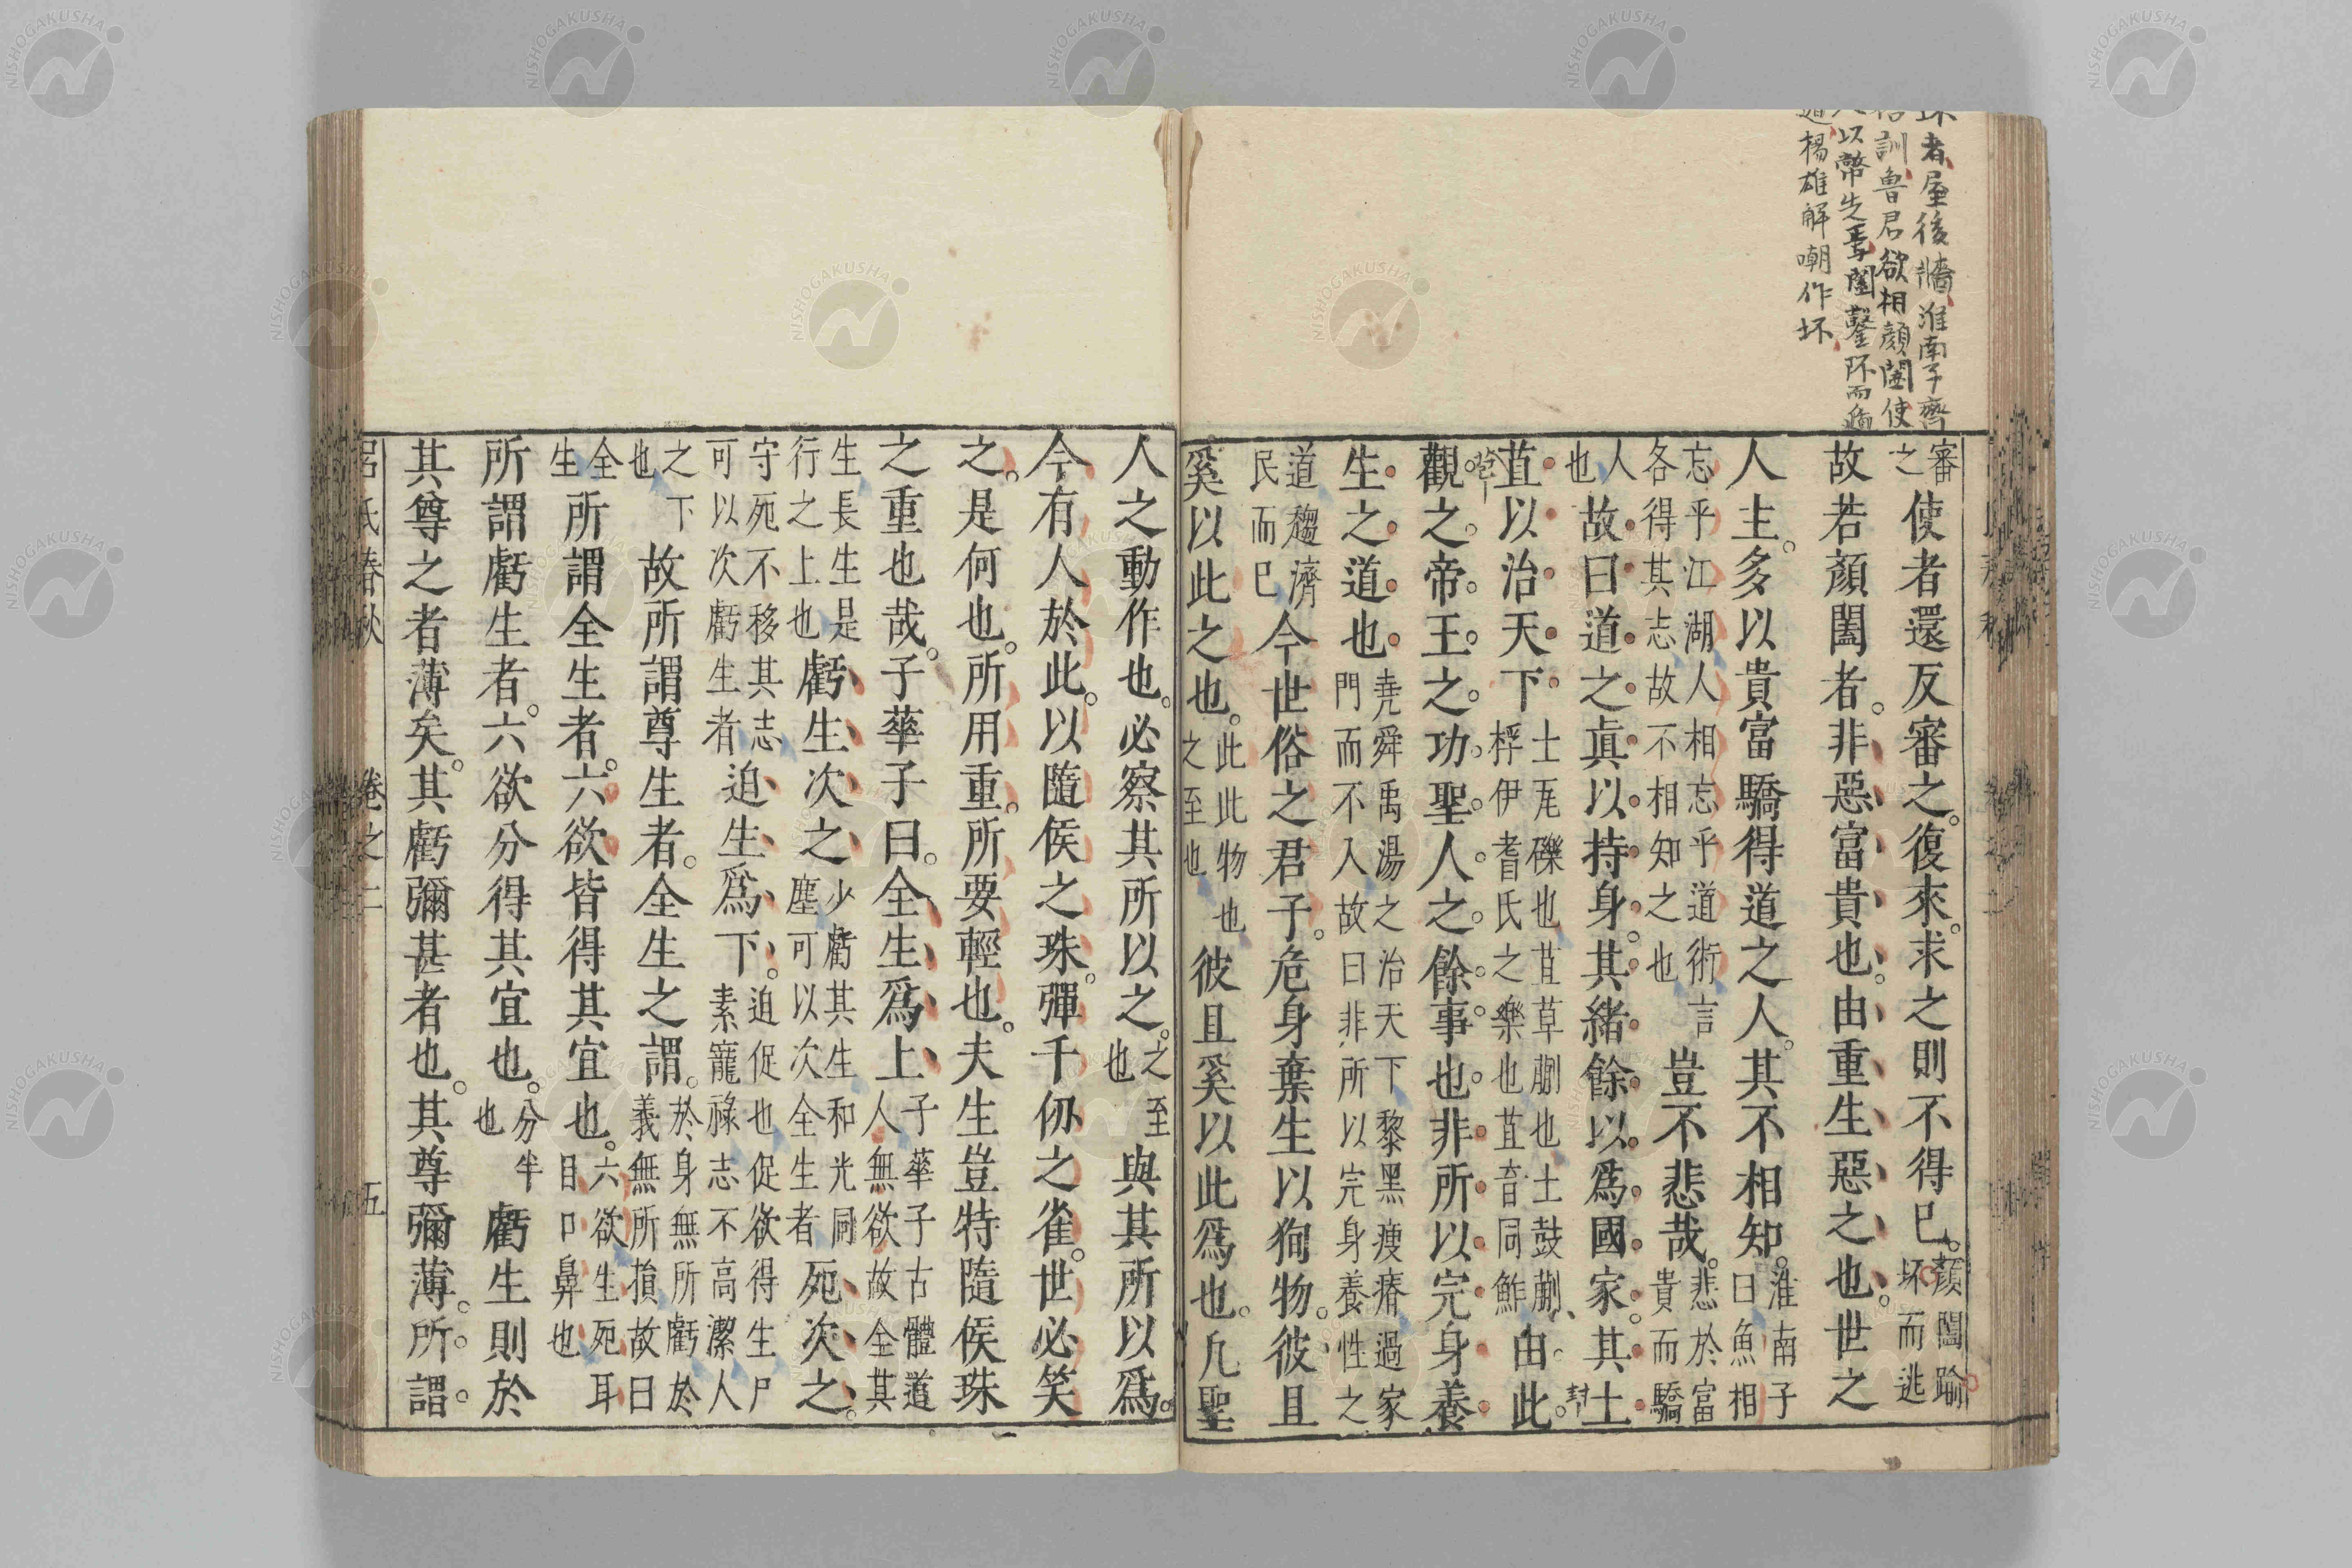 坏者屋後牆淮南子齊
俗訓魯君欲相顏闔使
人以幣先焉闔鑿坏而遁
楊雄解嘲作坏
審之使者還反審之。復來求之則不得已。顏闔踰坏而逃
故若顏闔者。非惡富貴也。由重生惡之也。世之
人主。多以貴富驕得道之人。其不相知。淮南子曰魚相
忘乎江湖人相忘乎道術言各得其志故不相知之也豈不悲哉。悲於富貴而驕
人也故曰道之眞以持身。其緒餘以爲國家。其土
苴以治天下士瓦礫也苴草蒯也土鼓蒯桴伊耆氏之樂也苴音同鮓由此
觀之。帝王之功。聖人之餘事也。非所以完身養
生之道也堯舜禹湯之治天下黎黑瘦瘠過家門而不入故曰非所以完身養性之
道趨濟民而已今世俗之君子。危身棄生以徇物。彼且
奚以此之也。此此物也之至也彼且奚以此爲也。凡聖
人之動作也。必察其所以之。之至也與其所以爲。
今有人於此。以隨侯之珠。彈千仞之雀。世必笑
之。是何也。所用重。所要輕也。夫生豈特隨侯珠
之重也哉。子華子曰。全生爲上子華子古體道人無欲故全其
生長生是行之上也虧生次之少虧其生和光同塵可以次全生者死次之。
守死不移其志可以次虧生者迫生爲下。迫促也促欲得生尸素寵祿志不高潔人
之下也故所謂尊生者。全生之謂。於身無所虧於義無所損故曰
全生所謂全生者。六欲皆得其宜也。六欲生死耳目口鼻也
所謂虧生者。六欲分得其宜也。分半也虧生則於
其尊之者薄矣。其虧彌甚者也。其尊彌薄。所謂
呂氏春秋 卷之二 五